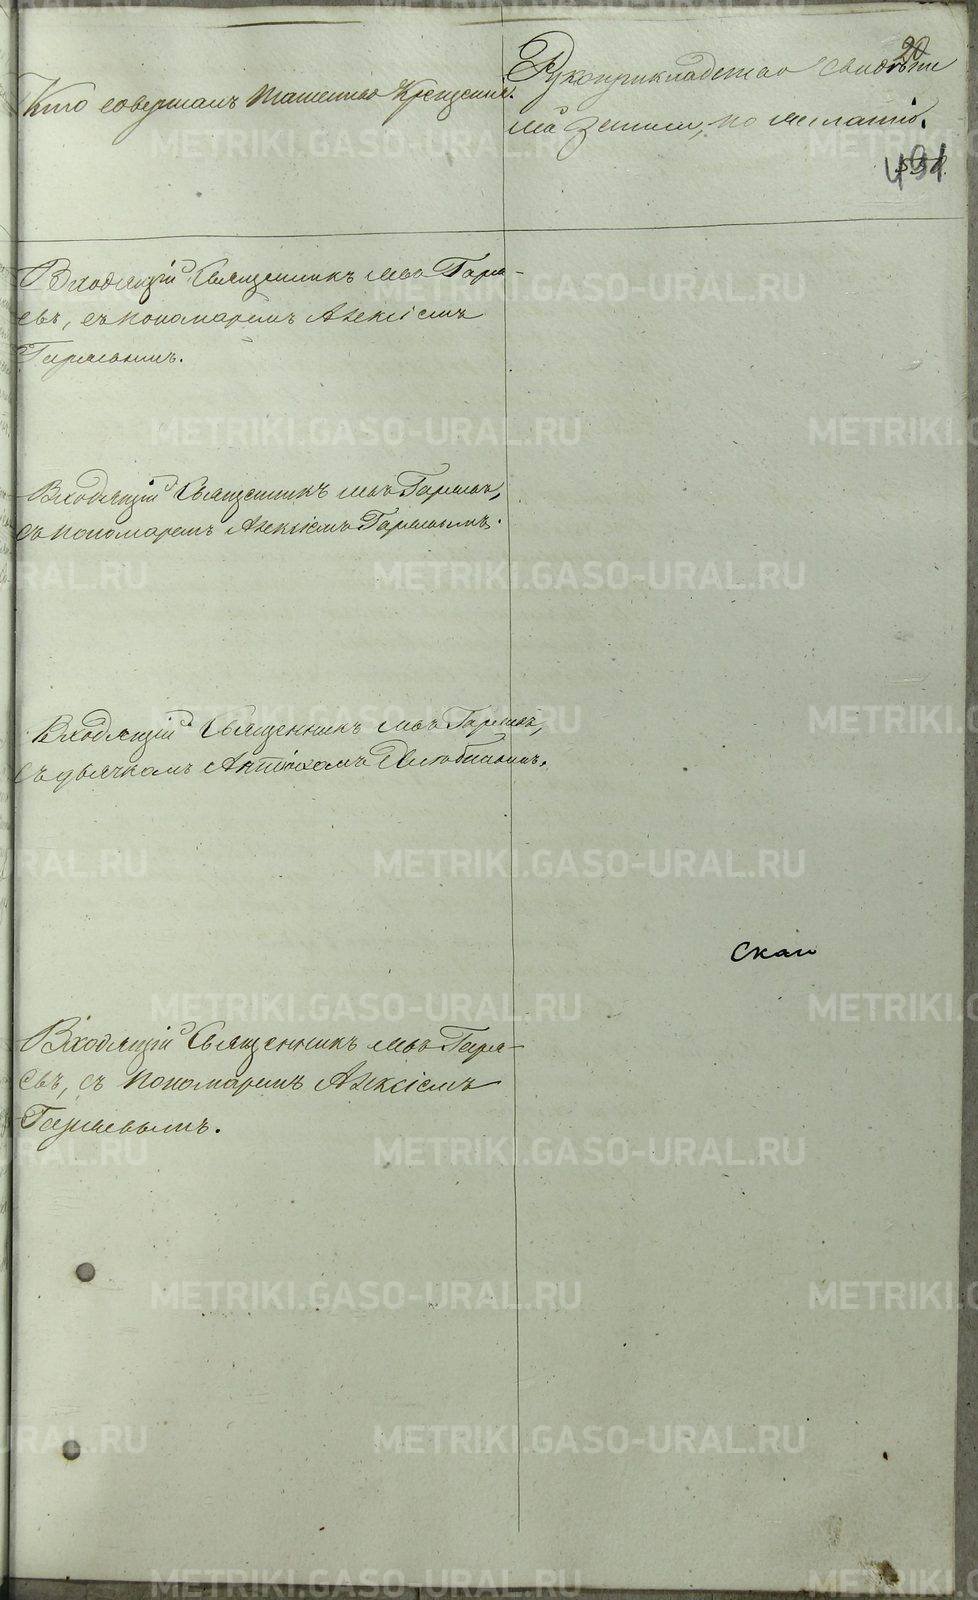 20
Кто совершалъ таинство Крещенія.
Рукоприкладство свидѣте
лей записи, по желанію.
491
Входящій Священникъ Левъ Гаря-
евъ, съ пономаремъ Алексіемъ
Гаряевымъ.
Входящій Священникъ Левъ Гаряевъ,
съ пономаремъ Алексіемъ Гаряевымъ.
Входящій Священникъ Левъ Гаряевъ,
съ дьячкомъ Антіохомъ
скан
Входящій Священникъ Левъ Гаря-
евъ, съ пономаремъ Алексіемъ
Гаряевымъ.
METRIKI.GASO-URAL.RU